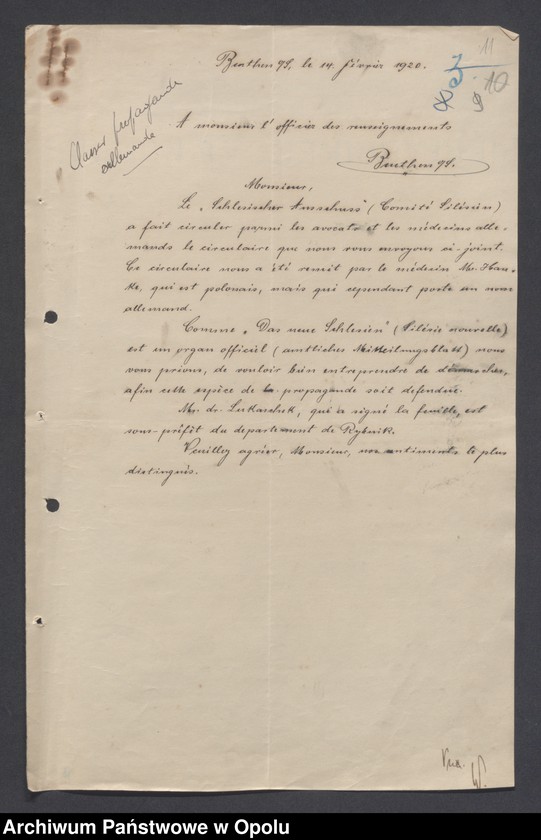 11
10
Beuthen O/S, le 14. février 1920.
Classer propagande
allemande
A monsieur l'officier des renseignements
Beuthen O/S.
Monsieur,
Le „Schlesischer Ausschuss" (Comité Silésien)
a fait circuler parmi les avocats et les médesins alle-
mands le circulaire que nous vous envoyons ci-joint.
Ce circulaire nous a été remit par le médesin Mr. Han-
ke, qui est polonais, mais qui cependant porte un nom
allemand.
Comme „Das neue Schlesien" (Silésie nouvelle)
est un organ officiel (amtliches Mitteilungsblatt) nous
vous prions, de vouloir bien entreprendre de démarches,
afin cette espèce de propagande soit defendue.
Mr. dr. Lukaschek, qui a signé la feuille, est
sous-préfêt du departement de Rybnik.
Veuillez agréer, Monsieur, nos sentiments le plus
distingués.
Archiwum Państwowe w Opolu